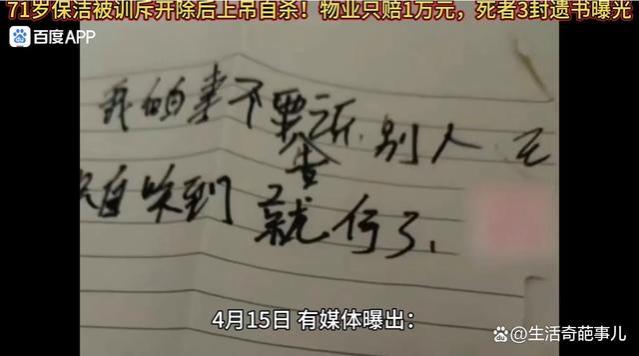 71岁保洁被训斥开除后上吊自杀！物业只赔1万元，死者3封遗书曝光
百度APP
我的事不要告诉别人
自 到就行了、
4月15日 有媒体曝出：
@生活奇葩事儿